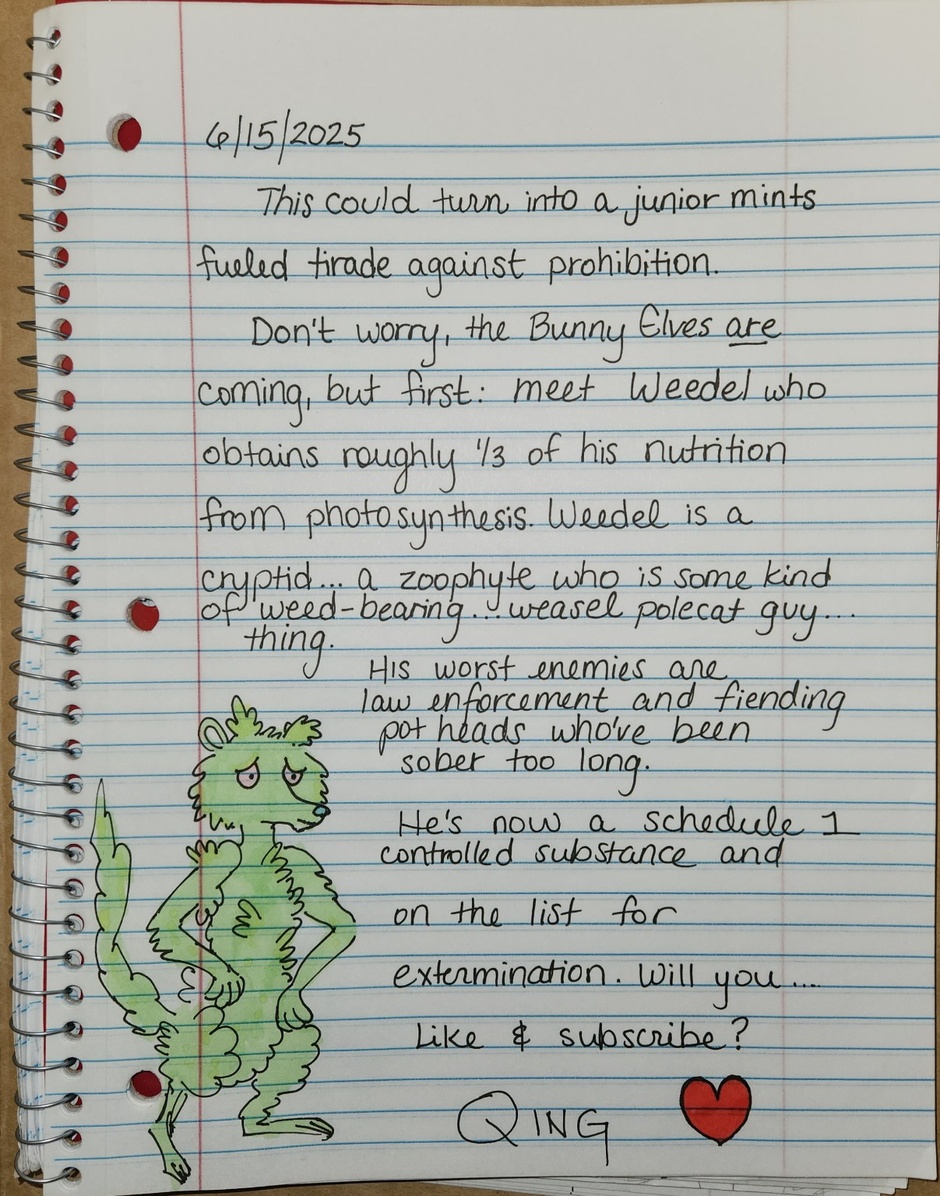 6/15/2025
This could turn into a junior mints
fueled tirade against prohibition.
Don't worry, the Bunny Elves are
coming, but first: meet Weedel who
obtains roughly 1/3 of his nutrition
from photosynthesis. Weedel is a
cryptid... a zoophyte who is some kind
of weed-bearing... weasel polecat guy...
thing.
His worst enemies are
law enforcement and fiending
pot heads who've been
sober too long.
He's now a schedule 1
controlled substance and
on the list for
extermination. Will you....
Like & subscribe?
QING